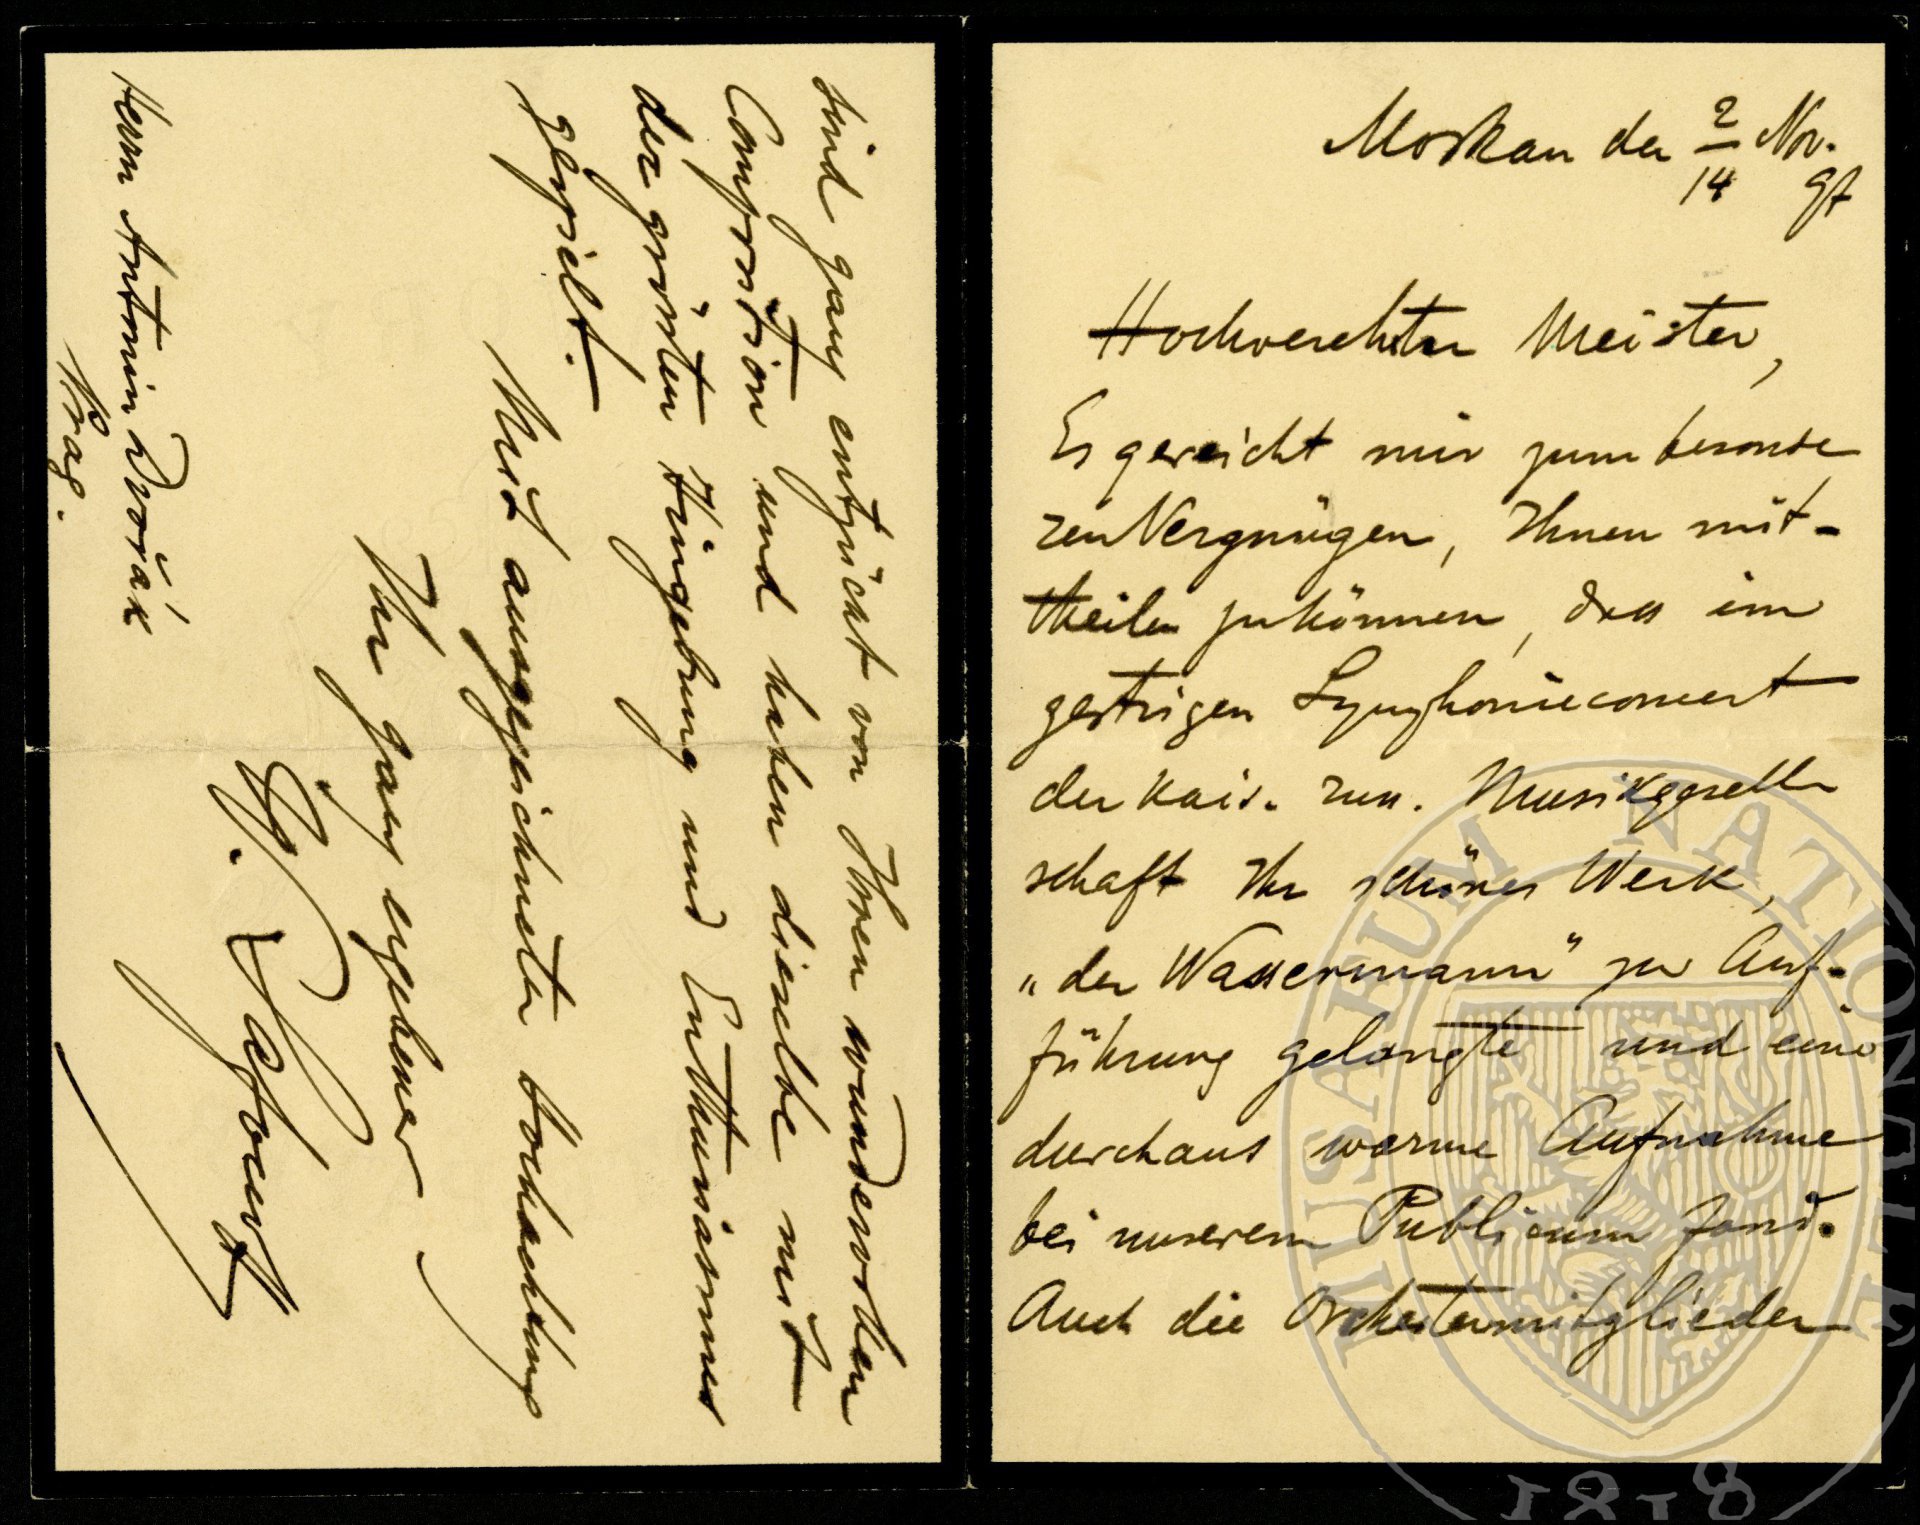 Moskau den 2/14 Nov.
97
Hochverehrter Meister,
Es gereicht mir zum besonde
ren Vergnügen, Ihnen mit-
theilen zu können, dass im
gestrigen Symphonieconcert
der Kais. russ. Musikgesell
schaft Ihr schönes Werk,
„der Wassermann" zu Auf-
führung gelangte und eine
durchaus warme Aufnahme
bei unserem Publicum fand.
Auch die Orchestermitglieder
sind ganz entzückt von Ihren wundervollen
Composition und haben dieselbe mit
der größten Hingebung und Enthusiasmus
gespielt.
Mit ausgezeichneter Hochachtung
Ihr ganz ergebener
W. Safonoff
Herrn Antonin Dvořák
Prag.
MUSAEUM NATIONALE
1818